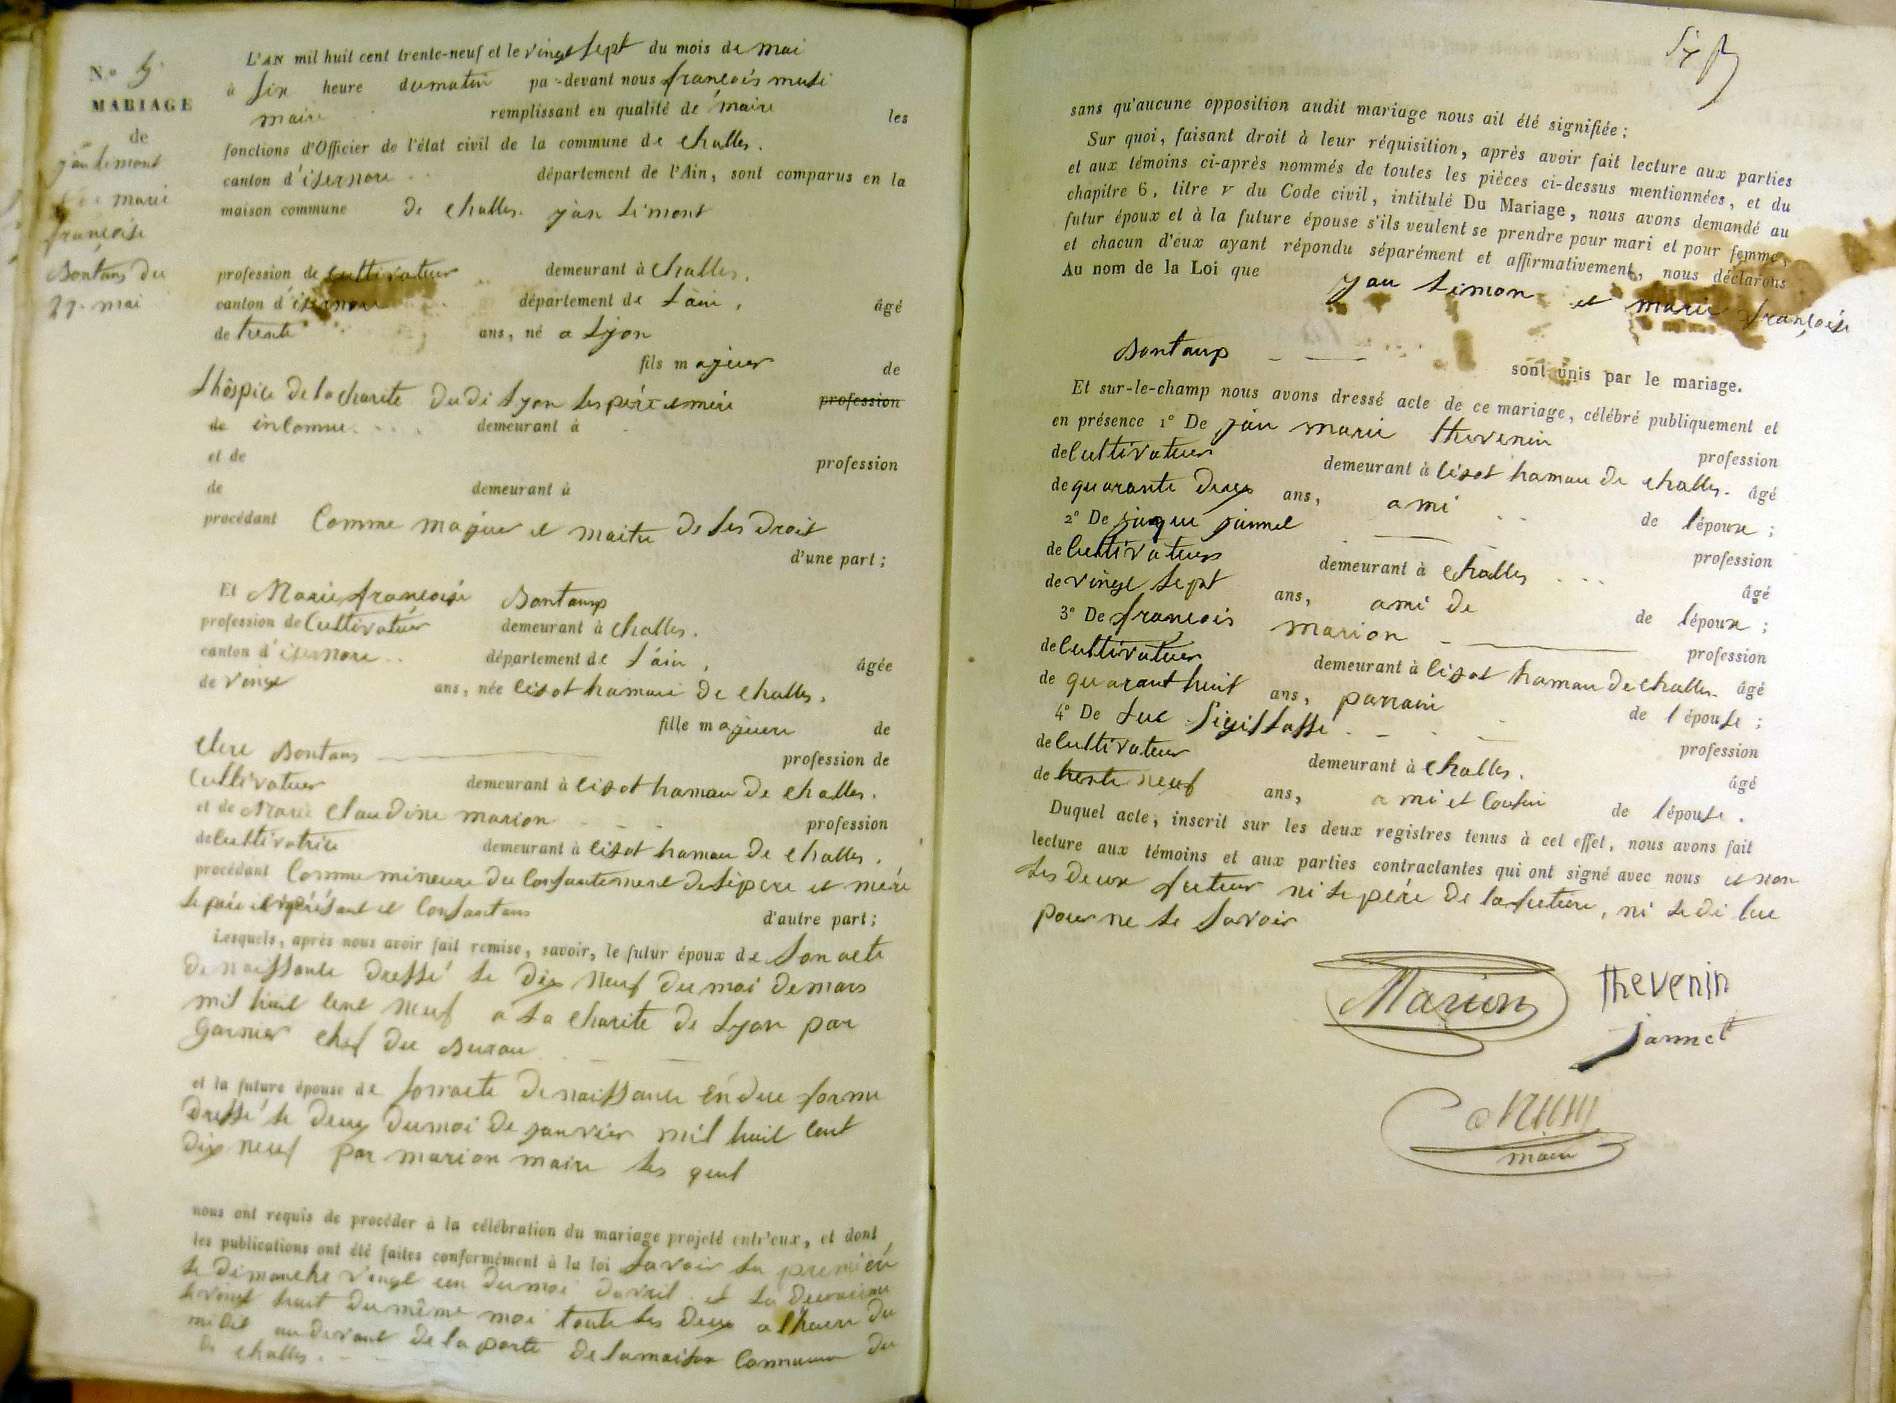 N.º 5
MARIAGE
de
jan simont
marie
françoise
Bontans du
27 mai
L'AN mil huit cent trente-neuf et le vingt sept du mois de mai
à six heure du matin par-devant nous françois
maire remplissant en qualité de maire les
fonctions d'Officier de l'état civil de la commune de challes.
canton d'isernore département de l'Ain, sont comparus en la
maison commune de challes. jan simont
profession de cultivateur demeurant à challes.
canton d'isernore département de l'ain, âgé
de trente ans, né a lyon
fils majeur de
l'hôspice de la charite dudi lyon ses père et mère profession
de inconnu demeurant à
et de profession
de demeurant à
procédant comme majeur et maitre de ses droit
d'une part;
Et Marie françoise Bontamp
profession de cultivateur demeurant à challes.
canton d'isernore département de l'ain, âgée
de vingt ans, née cisot hamau de challes.
fille majeure de
Bontans profession de
cultivateur demeurant à cisot hamau de challes.
et de Marie claudine marion profession
de cultivatrice demeurant à cisot hamau de challes.
procédant comme mineure du consantement de sipere et mére
le père
d'autre part;
Lesquels, après nous avoir fait remise, savoir, le futur époux de son acte
de naissance dressé le dix neuf du moi de mars
mil huit cent neuf a la charite de lyon par
garnier chef du Burau
et la future épouse de son acte de naissance en due forme
dressé le deux du moi de janvier mil huit cent
dix neuf par marion maire les quel
nous ont requis de procéder à la célébration du mariage projeté entr'eux, et dont
les publications ont été faites conformément à la loi savoir la premiér
le dimanche vingt un du moi davril et la deuxieme
le vingt huit du même moi toute les deux a lhaure du
midit au devant de la porte de la maison commune du
de challes.
sans qu'aucune opposition audit mariage nous ait été signifiée;
Sur quoi, faisant droit à leur réquisition, après avoir fait lecture aux parties
et aux témoins ci-après nommés de toutes les pièces ci-dessus mentionnées, et du
chapitre 6, titre v du Code civil, intitulé Du Mariage, nous avons demandé au
futur époux et à la future épouse s'ils veulent se prendre pour mari et pour femme,
et chacun d'eux ayant répondu séparément et affirmativement, nous déclarons
Au nom de la Loi que jan simon et marie françoise
Bontamp sont unis par le mariage.
Et sur-le-champ nous avons dressé acte de ce mariage, célébré publiquement et
en présence 1º De jan marie thevenin profession
de cultivateur demeurant à cisot hamau de challes. âgé
de quarante deux ans, ami de l'époux;
2º De jaque jannel profession
de cultivateur demeurant à challes âgé
de vingt sept ans, ami de de l'époux;
3º De françois marion profession
de cultivateur demeurant à cisot hamau de challes. âgé
de quarant huit ans, parrain de l'épouse;
4º De Luc profession
de cultivateur demeurant à challes. âgé
de trente neuf ans, ami et cousin de l'épouse.
Duquel acte, inscrit sur les deux registres tenus à cet effet, nous avons fait
lecture aux témoins et aux parties contractantes qui ont signé avec nous et non
les deux futeur ni le père de la future, ni le di luc
pour ne le savoir
Marion
thevenin
Jannet
maire